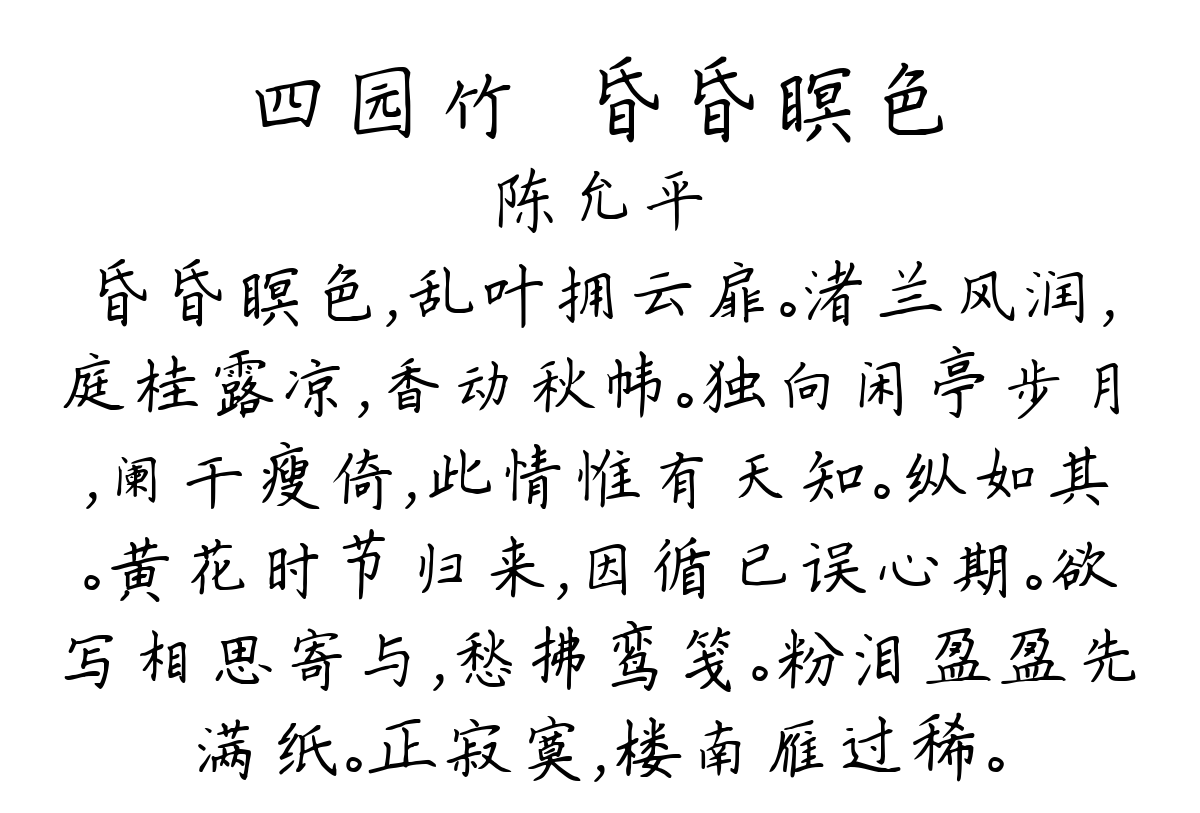 四园竹 昏昏瞑色
陈允平
昏昏瞑色,乱叶拥云扉。渚兰风润,
庭桂露凉,香动秋帏。独向闲亭步月
,阑干瘦倚,此情惟有天知。纵如其
。黄花时节归来,因循已误心期。欲
写相思寄与,愁拂鸾笺。粉泪盈盈先
满纸。正寂寞,楼南雁过稀。